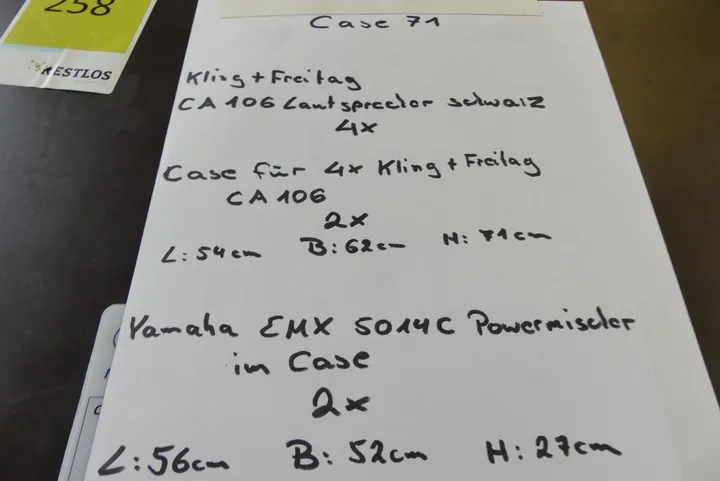 258
RESTLOS
Case 71
Kling + Freitag
CA 106 Lautsprecher schwarz
4x
Case für 4x Kling + Freitag
CA 106
2x
L: 54cm B: 62cm H: 71cm
Yamaha EMX 5014C Powermischer
im Case
2x
L: 56cm B: 52cm H: 27cm